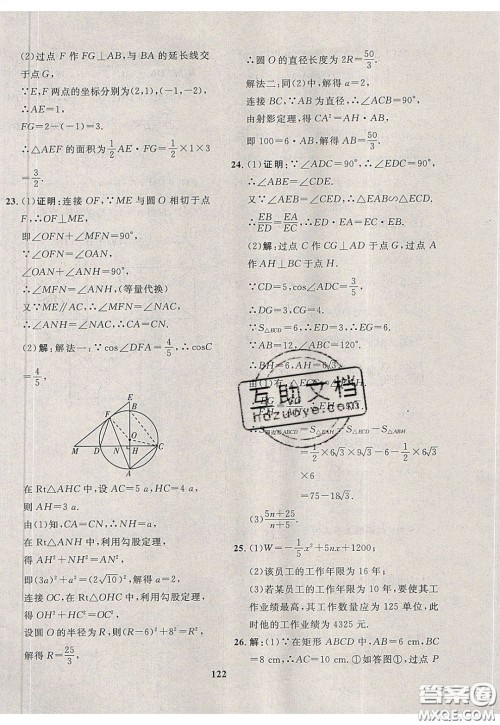 (2)过点 F 作 FG⊥AB,与 BA 的延长线交
于点 G,
∵E,F 两点的坐标分别为(2,1),(-1,-2),
∴AE=1,
FG=2-(-1)=3.
∴△AEF 的面积为 1/2 AE·FG=1/2×1×3
=3/2.
23. (1)证明:连接 OF,∵ME 与圆 O 相切于点
F,∴OF⊥ME,
即∠OFN+∠MFN=90°,
∵∠OFN=∠OAN,
∠OAN+∠ANH=90°,
∴∠MFN=∠ANH,(等量代换)
又∵ME∥AC,∴∠MFN=∠NAC,
∴∠ANH=∠NAC,∴CA=CN.
(2)解:解法一:∵cos∠DFA=4/5,∴cosC
=4/5,
在 Rt△AHC 中,设 AC=5a,HC=4a,
则 AH=3a,
由(1)知,CA=CN,∴NH=a,
在 Rt△ANH 中,利用勾股定理,
得 AH²+NH²=AN²,
即(3a)²+a²=(2√10)²,解得 a=2,
连接 OC,在 Rt△OHC 中,利用勾股定理,
得 OH²+HC²=OC²,
设圆 O 的半径为 R,则(R-6)²+8²=R²,
解得 R=25/3,
∴圆 O 的直径长度为 2R=50/3.
解法二:同(2)中,解得 a=2,
连接 BC,∵AB 是直径,∴∠ACB=90°,
由射影定理,得 CA²=AH·AB,
即 100=6·AB,解得 AB=50/3.
24. (1)证明:∵∠ADC=90°,∠EDC=90°,
∴∠ABE=90°,
∴∠ABE=∠CDE,
又∵∠AEB=∠CED,∴△EAB∽△ECD,
∴EB/ED=EA/EC,∴EB/EA=ED/EC.
(2)解:过点 C 作 CG⊥AD 于点 G,过点 A
作 AH⊥BC 于点 H,
∵CD=5,cos∠ADC=3/5,
∴DG=3,CG=4,
∵S△ECD=6,∴ED=3,∴EG=6.
∵AB=12,∠ABC=120°,则∠BAH=30°,
∴BH=6,AH=6√3,
=1/2×6√3×9√3-6-1/2×6
×6√3
=75-18√3.
(3)(5n+25)/(n+5).
25. (1)W=-1/5x²+5nx+1200;
(2)该员工的工作年限为 16 年;
(3)若某员工的工作年限为 10 年,要使其工
作业绩最高,其工作数量应为 125 单位,此
时他的工作业绩为 4325 元.
26. 解:(1)∵在矩形 ABCD 中,AB=6 cm,BC
=8 cm,∴AC=10 cm.①如答图1,过点 P
122
互助文档
hozuoye.com
答案圈
MXQE.COM